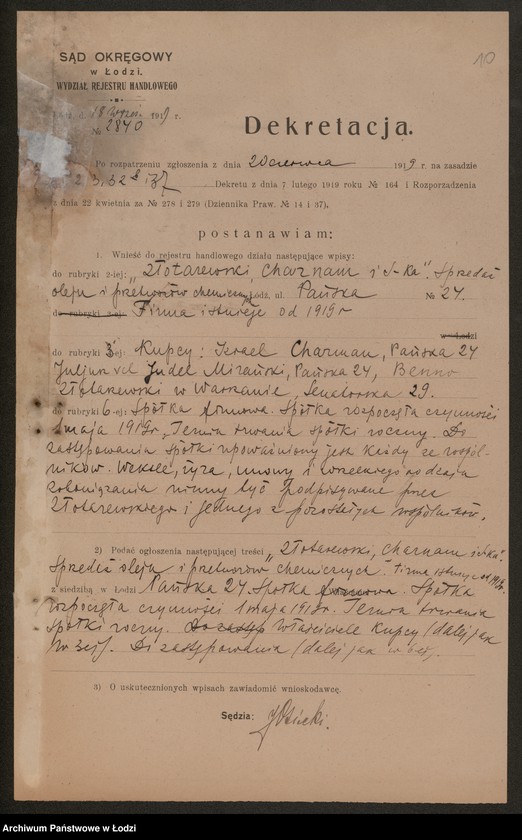 10
SĄD OKRĘGOWY
w Łodzi.
WYDZIAŁ REJESTRU HANDLOWEGO
d. 18 wrześ. 1919 r.
№ 2840
Dekretacja.
Po rozpatrzeniu zgłoszenia z dnia 20 czerwca 1919 r. na zasadzie
2, 3, 32 Dekretu z dnia 7 lutego 1919 roku № 164 i Rozporządzenia
z dnia 22 kwietnia za № 278 i 279 (Dziennika Praw. № 14 i 37).
postanawiam:
1. Wnieść do rejestru handlowego działu następujące wpisy:
do rubryki 2-iej: „Złotarewski Charnam i S-ka". Sprzedaż
oleju i przetworów chemicznych Łódź, ul. Pańska № 24.
do rubryki 2-iej: Firma istnieje od 1919 r
w Łodzi
do rubryki 3 ej: Kupcy: Izrael Charman, Pańska 24
Juljusz vel Judel Mirański, Pańska 24, Benno
Złotarewski w Warszawie, Senatorska 29.
do rubryki 6-ej: Spółka firmowa. Spółka rozpoczęła czynności
1 maja 1919 r, Termin trwania spółki roczny. Do
zastępowania spółki upoważniony jest każdy ze wspól-
ników. Weksle, żyra, umowy i wszelkiego rodzaju
zobowiązania winny być podpisywane przez
Złotarewskiego i jednego z pozostałych wspólników.
2) Podać ogłoszenia następującej treści „Złotarewski, Charnam i S-ka".
Sprzedaż oleju i przetworów chemicznych. Firma istnieje od 1919 r.
z siedzibą w Łodzi Pańska 24. Spółka firmowa. Spółka
rozpoczęła czynności 1 maja 1919 r. Termin trwania
spółki roczny. Do zastęp Właściciele kupcy (dalej jak
w 3ej). Do zastępowania (dalej jak w 6ej).
3) O uskutecznionych wpisach zawiadomić wnioskodawcę.
Sędzia:
Archiwum Państwowe w Łodzi